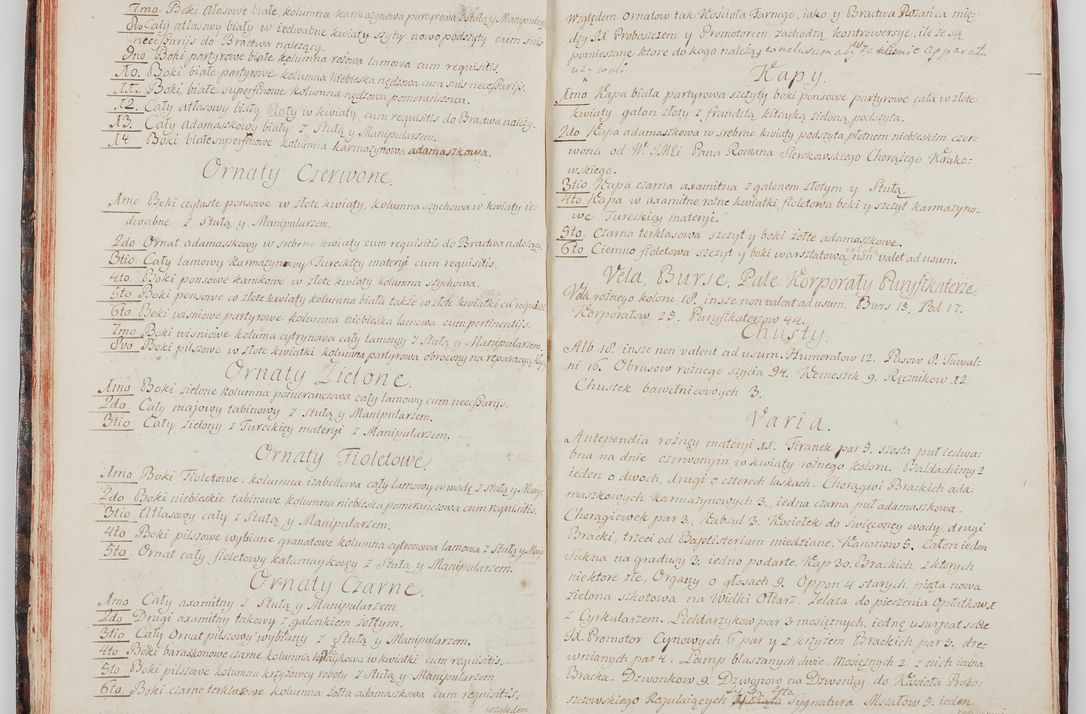 7mo Boki Atłasowe białe, kolumna karmazynowa partyrowa z Stułą y Manipularz
8vo Cały atłasowy biały w iedwabne kwiaty szyty nowo podszyty cum suis
necessarijs do Bractwa należący.
9no Boki partyrowe białe kolumna rożowa lamowa cum requisitis.
10. Boki białe partyrowe kolumna niebieska nędzowa cum suis necessarijs.
11. Boki białe superfinowe kolumna nędzowa pomerańczowa.
12. Cały atłasowy biały w kwiaty cum requisitis do Bractwa należy.
13. Cały Adamaszkowy biały z Stułą y Manipularzem.
14 Boki białe superfinowe kolumna karmazynowa adamaszkowa.
Ornaty Czerwone.
1mo Boki ceglaste ponsowe w złote kwiaty, kolumna szychowa w kwiaty ie-
dwabne z Stułą y Manipularzem.
2do Ornat adamaszkowy w srebrne kwiaty cum requisitis do Bractwa należący
3tio Cały lamowy karmazynowy Tureckiey materyi cum requisitis.
4to Boki ponsowe kanikowe w złote kwiaty kolumna szychowa.
5to Boki ponsowe w złote kwiaty kolumna biała także w złote kwiatki cu requisitis
6to Boki wiśniowe partyrowe kolumna niebieska lamowa cum pertinentijs.
7mo Boki wiśniowe kolumna cytrynowa cały lamowy z Stułą y Manipularzem.
8vo Boki pilszowe w złote kwiatki kolumna partyrowa obrocony na reparacyą Kap
Ornaty Zielone.
1mo Boki zielone kolumna pomerańczowa cały lamowy cum necessarijs.
2do Cały majowy tabinowy z Stułą y Manipularzem.
3tio Cały zielony z Tureckiey materyi z Manipularzem.
Ornaty Fioletowe.
1mo Boki Fioletowe, kolumna izabellowa cały lamowy w wodę z Stułą y Manip
2do Boki niebieskie tabinowe kolumna niebieska pomerańczowa cum requisitis.
3tio Atlasowy cały z Stułą y Manipularzem.
4to Boki pilszowe wybiane granatowe kolumna cytronowa lamowa z Stułą y Manip
5to Ornat cały fioletowy kałamaykowy z Stułą y Manipularzem.
Ornaty Czarne.
1mo Cały axamitny z Stułą y Manipularzem
2do Drugi axamitny takowy z galonkiem żółtym.
3tio Cały Ornat pilszowy wybitany z Stułą y Manipularzem.
4to Boki barakonowe czarne kolumna kitaykowa w kwiatki cum requisitis.
5to Boki pilszowe kolumna krzyżowey roboty z Stułą y Manipularzem
6to Boki czarne terklasowe kolumna żołta adamaszkowa cum requisitis.
względem
Względem ornatow tak Kościoła Farnego, iako y Bractwa Rożańca mię-
dzy JX Proboszczem y Promotorem zachodzą kontrowersye, ile że są
pomieszane ktore do kogo należą
Kapy.
1mo Kapa biała partyrowa szczyty boki ponsowe partyrowe cała w złote
kwiaty galon złoty z frandzlą kitayką zieloną podszyta.
2do Kapa adamaszkowa w srebrne kwiaty podszyta płotnem niebieskim czer-
wona od W. JMCi Pana Romana Sierakowskiego Chorążego Krako-
wskiego.
3tio Kapa czarna axamitna z galonem złotym y Stułą.
4to Kapa w axamitne rożne kwiatki fioletowa boki y szczyt karmazyno-
we Tureckiey materyi.
5to. Czarna terklasowa szczyt y boki żołte adamaszkowe.
6to Ciemno fioletowa szczyt y boki warsztatowa, non valet ad usum.
Vela, Burse, Pale Korporały Puryfikaterze
Vela rożnego koloru 18. insze non valent ad usum. Burs 15. Pal 17.
Korporałow 25. Puryfikaterzow 44.
Chusty.
Alb 18. insze non valent ad usum. Humerałow 12. Pasow 8. Tuwal-
ni 16. Obrusow rożnego szycia 34. Komeszek 9. Ręcznikow 12.
Chustek bawełnicowych 3.
Varia.
Antependia rożney materyi 11. Firanek par 5. szosta puł iedwa-
bna na dnie czerwonym w kwiaty rożnego koloru. Baldachimy 2
ieden o dwoch, drugi o czterech laskach. Chorągwi Brackich ada-
maszkowych karmazynowych 3. iedna czarna puł adamaszkowa.
Chorągiewek par 3. Kabzul 3. Kociełek do święconey wody, drugi
Bracki, trzeci od Baptisterium miedziane. Kanonow 5. Całon ieden
Sukna na gradusy 3. iedno podarte. Kap 30. Brackich, z ktorych
niektore złe, Organy o głosach 9. Oppon 4 starych, piąta nowa
zielona szkotowa na Wielki Ołtarz. Żelaza do pieczenia Opłatkow z
z Cyrkularzem. Lichtarzykow par 3 mosiężnych, iednę usurpat sobie
JX. Promotor Cynowych 6 par y z krzyżem Brackich par 3. dre-
wnianych par 4. Lamp blaszanych dwie. Mosiężnych 2. z nich iedna
Bracka. Dzwonkow 9. Dzwonow na Dzwonicy do Kościoła Probo-
szczowskiego Regulaiących 3. 4ta Sygnatura. Mszałow 5. ieden